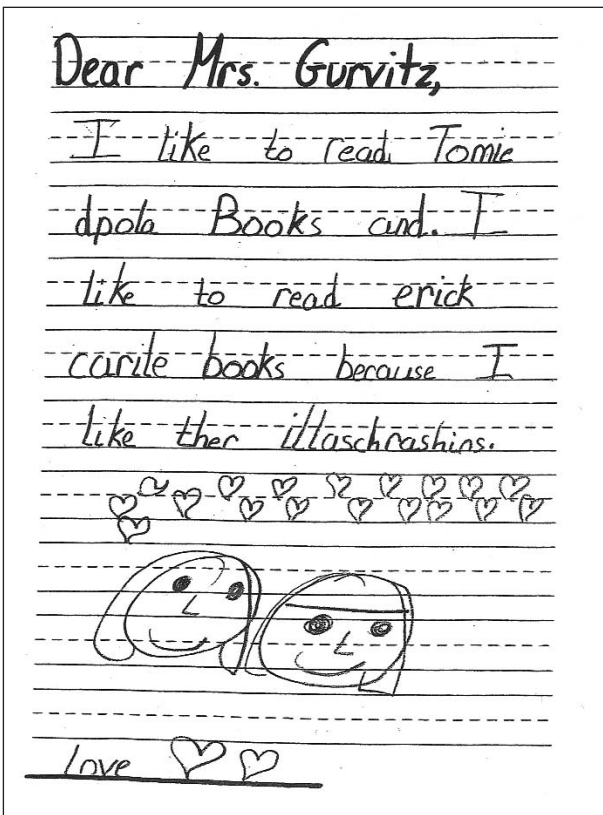 Dear Mrs. Gurvitz,
I like to read Tomie
dpola Books and. I
like to read erick
carile books because I
like ther illaschrashins.
love